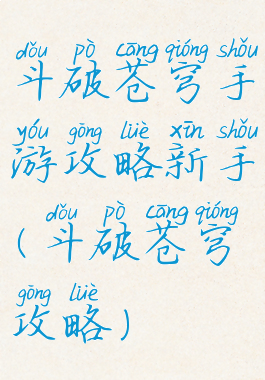 dǒu pò cāng qióng shǒu
斗破苍穹手
yóu gōng lüè xīn shǒu
游攻略新手
dǒu pò cāng qióng
(斗破苍穹
gōng lüè
攻略)